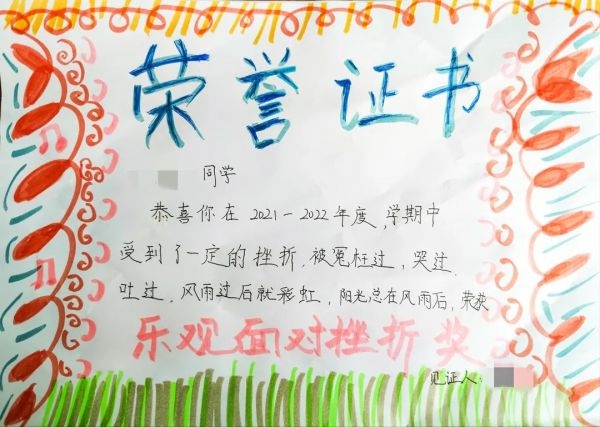 荣誉证书
同学
恭喜你在2021-2022年度,学期中
受到了一定的挫折,被冤枉过,哭过,
吐过,风雨过后就彩虹,阳光总在风雨后,荣获
乐观面对挫折奖
见证人: